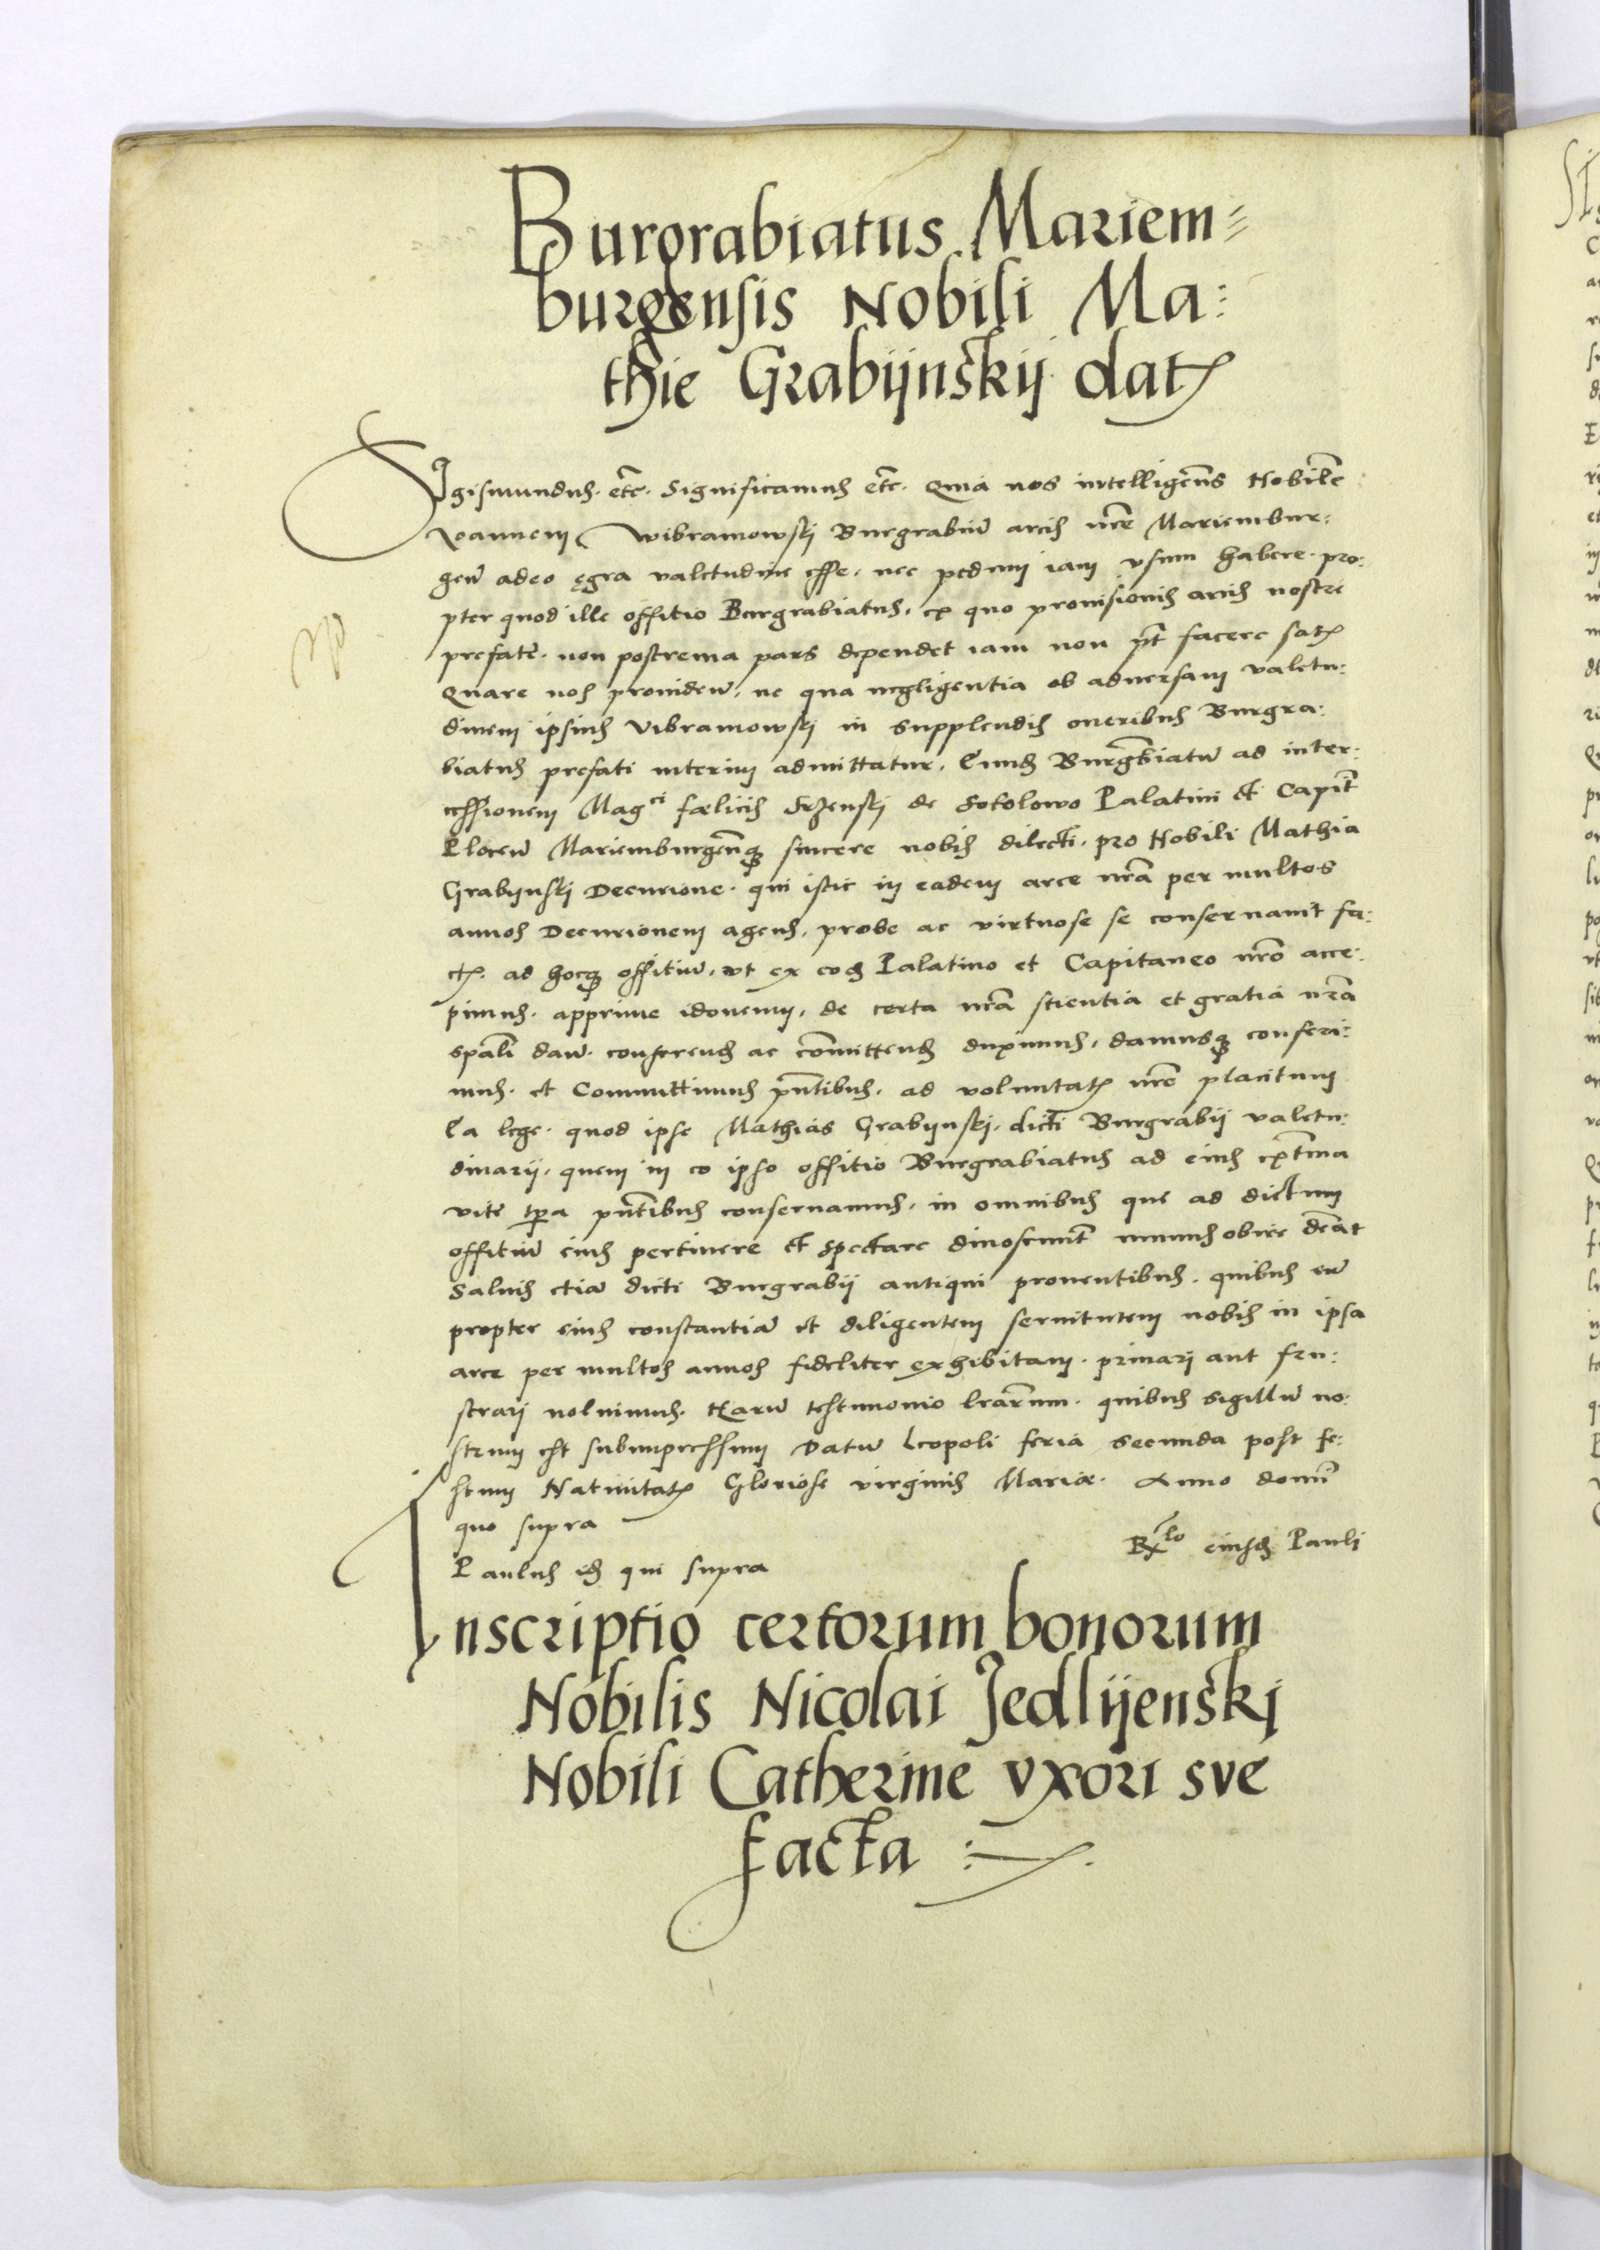 Burgrabiatus Mariem=
burgensis Nobili Ma:
thie Grabijnskij datꝭ
Sigismundus. etc̃. Significamus etc̃. Quia nos intelligen̄s Nobilē
Joannem Wibramowski Burgrabiū arcis nr̃e Mariembur:
geñ adeo ęgra valetudine esse, nec pedum iam vsum habere. pro:
pter quod ille offitio Burgrabiatus, ex quo prouisionis arcis nostre
prefate. non postrema pars dependet iam non pt̃ facere satꝭ
Quare nos prouideñ, ne qua negligentia ob aduersam valetu:
dinem ipsius Vibramowski in supplendis oneribus Burgra:
biatus prefati interim admittatur, Eundẽ Burgr̃biatū ad inter:
cessionem Mag^ci fœlicis Srzenski de Sokolowo Palatini et Capit̃
Ploceñ Mariemburgeñqꝫ sincere nobis dilecti. pro Nobili Mathia
Grabijnski Decurione. qui istic in eadem arce nr̃a per multos
annos Decurionem agens, probe ac virtuose se conseruauit fa:
ctꝭ. ad hocqꝫ offitiū, vt ex eodẽ Palatino et Capitaneo nr̃o acce:
pimus. apprime idoneum, de certa nr̃a scientia et gratia nr̃a
spāli dañ. conferendẽ ac com̃ittendẽ duximus, damusqꝫ conferi:
mus. et Committimus pñtibus. ad voluntatꝭ nr̃e placitum
Ea lege. quod ipse Mathias Grabijnski. dicti Burgrabii valetu:
dinarij, quem in eo ipso offitio Burgrabiatus ad eius extr̃ma
vite tp̃a pñtibus conseruamus, in omnibus que ad dictum
offitiū eius pertinere et spectare dinoscunt̃ munus obire deāt
Saluis etiā dicti Burgrabii antiqui prouentibus. quibus eū
propter eius constantiā et diligentem seruitutem nobis in ipsa
arce per multos annos fideliter exhibitam. priuari aut fru:
strari noluimus. Harū testimonio lr̃arum. quibus sigillū no:
strum est subimpressum Datū Leopoli feria secunda post fe:
stum Natiuitatꝭ Gloriose virginis Mariæ. Anno domĩ
quo supra
Paulus idẽ qui supra
R^lo eiusdẽ Pauli
Inscriptio certorum bonorum
Nobilis Nicolai Jedlijenskj
Nobili Catherine vxori sve
facta